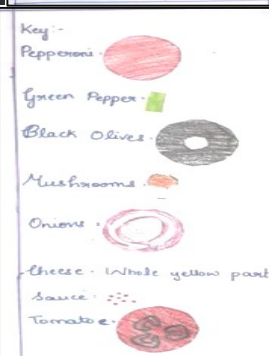 Key:-
Pepperoni.
Green Pepper.
Black Olives.
Mushrooms.
Onions.
Cheese. Whole yellow part
Sauce.
Tomatoe.